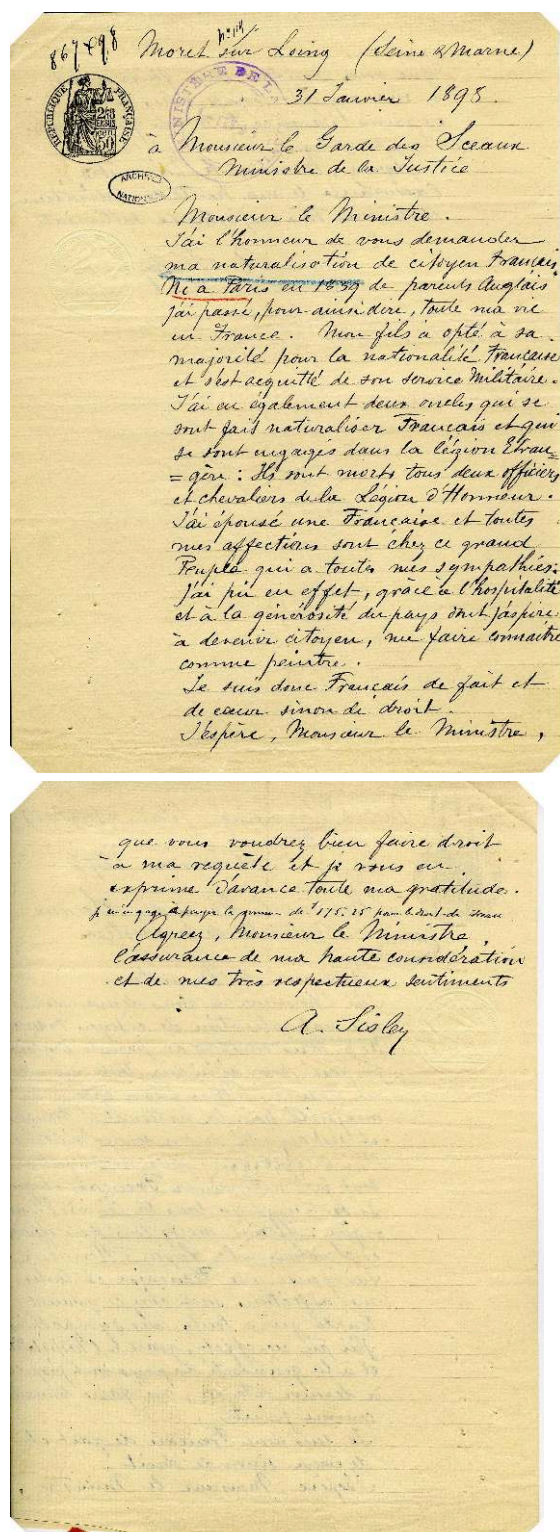 867 X 98
Moret sur Loing (Seine & Marne)
31 Janvier 1898.
MINISTÈRE DE LA
RÉPUBLIQUE FRANÇAISE
à Monsieur le Garde des Sceaux
Ministre de la Justice
ARCHIVES
NATIONALES
Monsieur le Ministre.
J'ai l'honneur de vous demander
ma naturalisation de citoyen Français.
Né à Paris en 1839 de parents Anglais
j'ai passé, pour ainsi dire, toute ma vie
en France. Mon fils a opté à sa
majorité pour la nationalité Française
et s'est acquitté de son service Militaire.
J'ai eu également deux oncles qui se
sont fait naturaliser Français et qui
se sont engagés dans la légion Etran=
=gère : Ils sont morts tous deux officiers
et chevaliers de la Légion d'Honneur.
J'ai épousé une Française et toutes
mes affections sont chez ce grand
Peuple qui a toutes mes sympathies.
J'ai pu en effet, grâce à l'hospitalité
et à la générosité du pays dont j'aspire
à devenir citoyen, me faire connaître
comme peintre.
Je suis donc Français de fait et
de cœur sinon de droit.
J'espère, Monsieur le Ministre,
que vous voudrez bien faire droit
à ma requête et je vous en
exprime d'avance toute ma gratitude.
je m'engage à payer la somme de f 175.25 pour le droit de sceau
Agréez, Monsieur le Ministre,
l'assurance de ma haute considération
et de mes très respectueux sentiments
A. Sisley